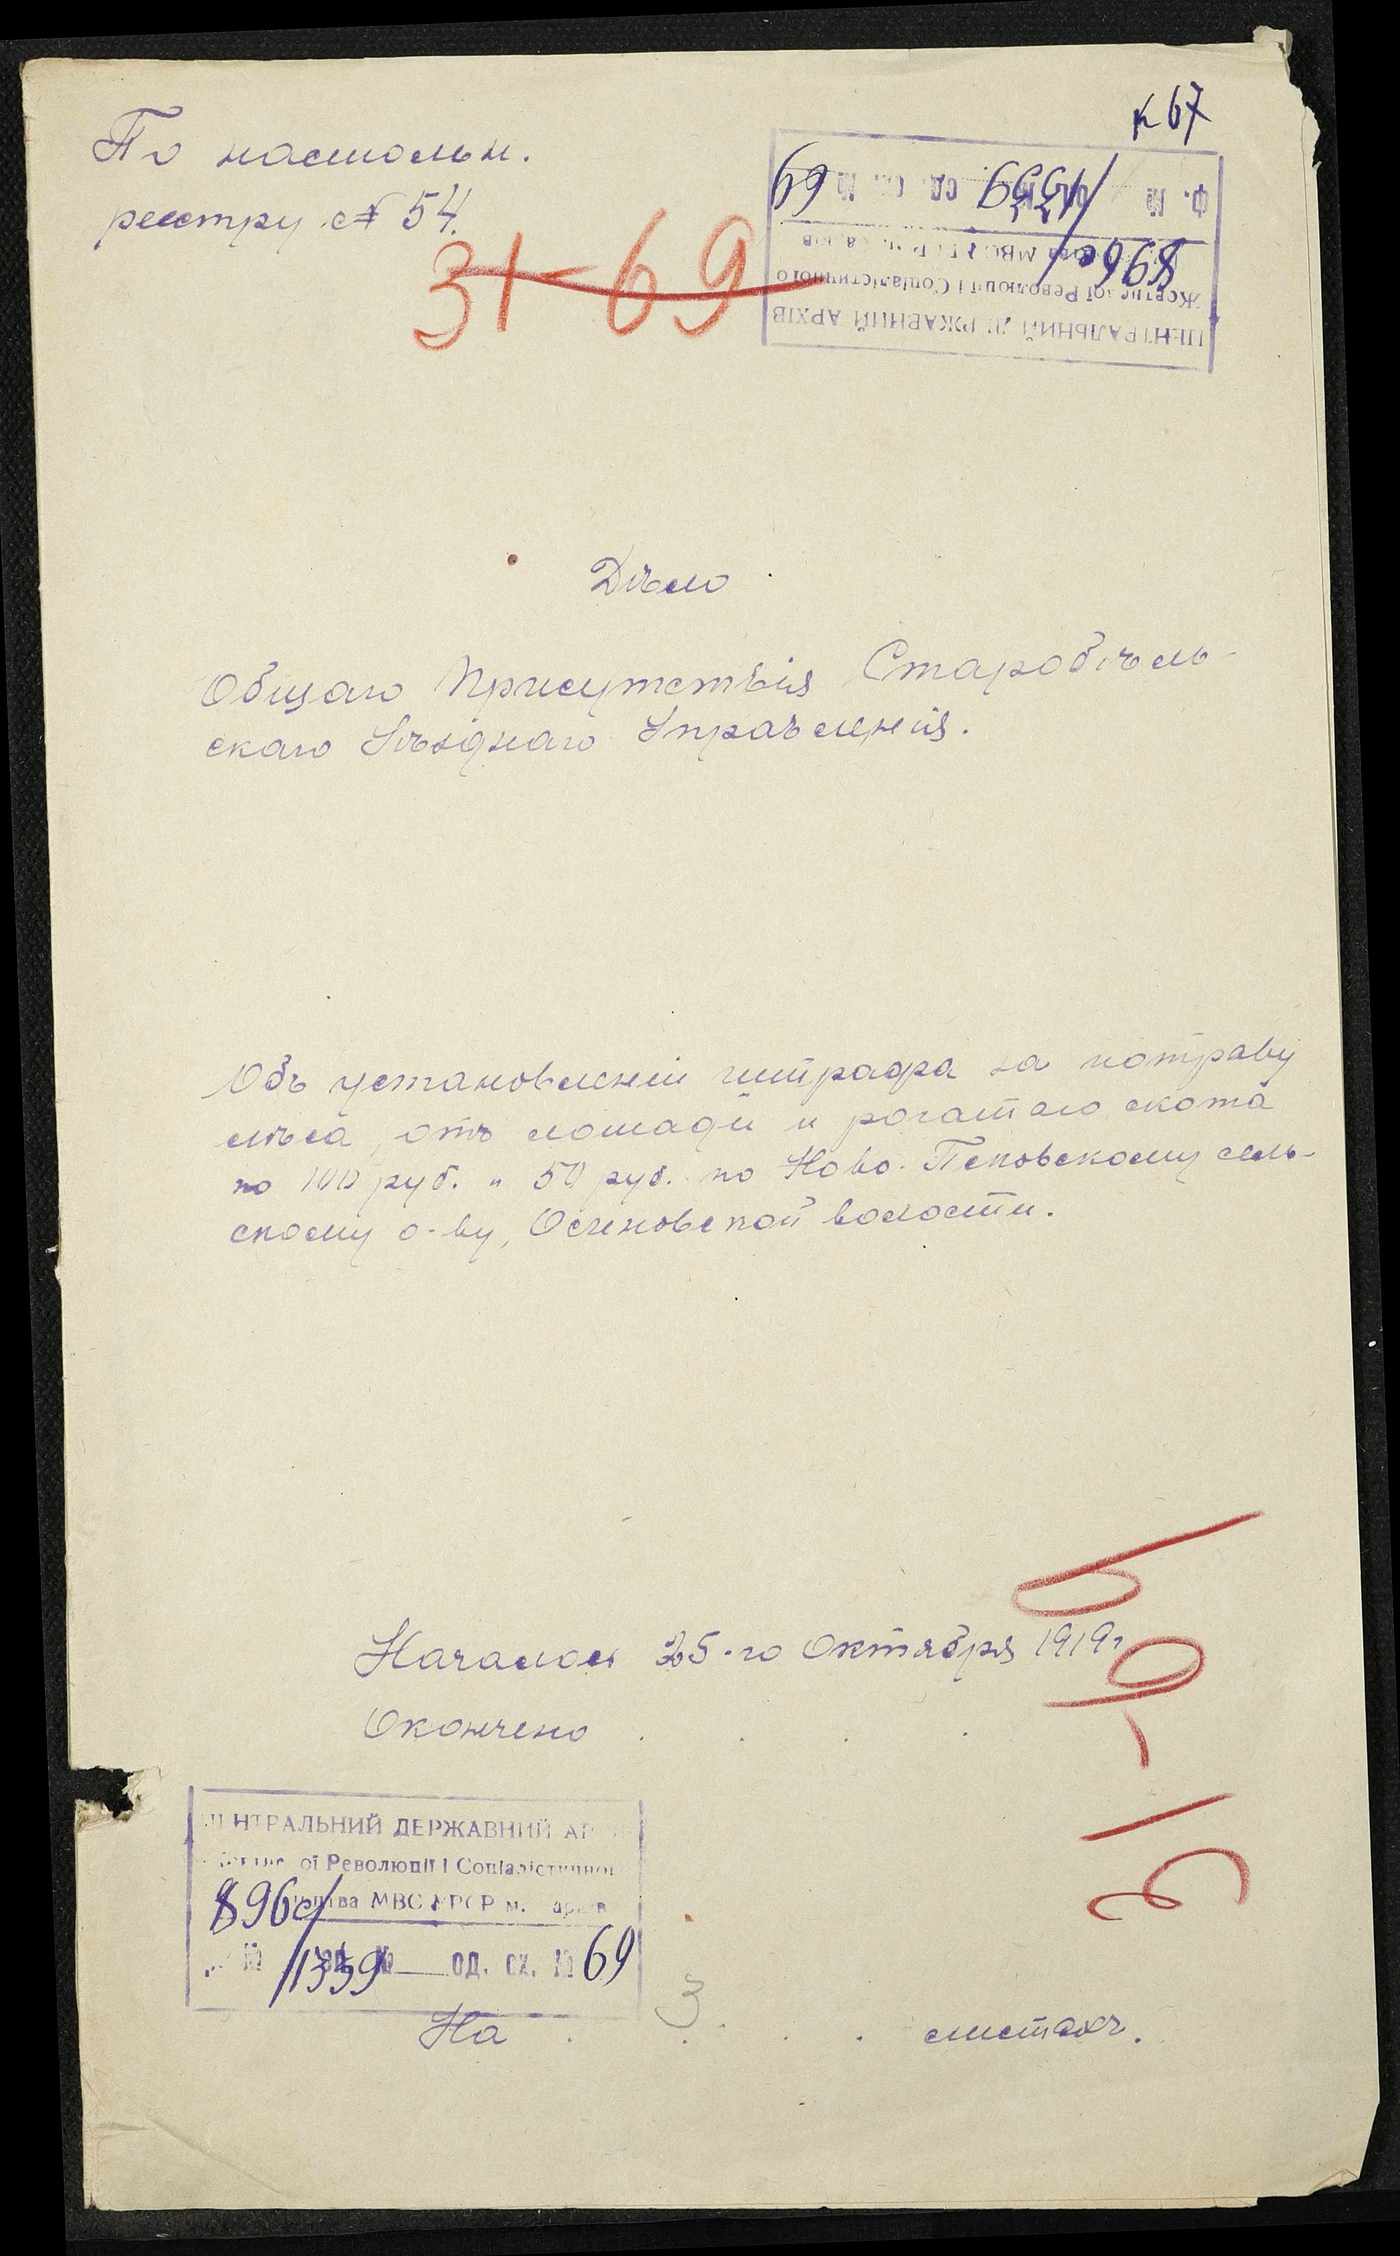 к 67
По настольн.
реестру № 54.
31-69
ЦЕНТРАЛЬНИЙ ДЕРЖАВНИЙ АРХІВ
Жовтневої Революції і Соціалістичного
896с/
Ф. № /1359 од. сх. № 69
Дѣло
Общаго Присутствія Старобѣль-
скаго Уѣзднаго Управленія.
Объ установленіи штрафа за потраву
лѣса, отъ лошади и рогатаго скота
по 100 руб. и 50 руб. по Ново-Псковскому сель-
скому о-ву, Осиновской волости.
Началось 25-го Октября 1919 г
Окончено . . . .
31
ЦЕНТРАЛЬНИЙ ДЕРЖАВНИЙ АР
ої Революції і Соціалістичної
896с/ МВС УРСР м.
№ /1359 од. сх. № 69
На . 3 . . . . листахъ.